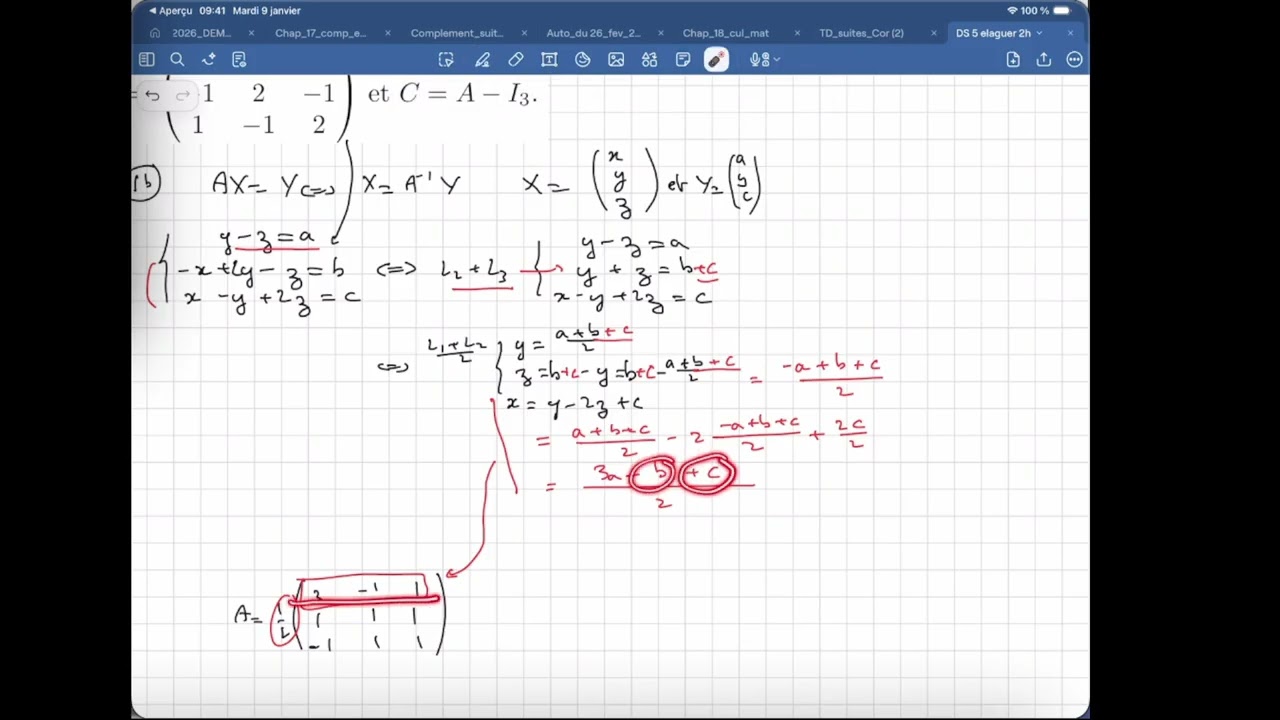 ◀ Aperçu 09:41 Mardi 9 janvier 100 %
2026_DEM... × Chap_17_comp_e... × Complement_suit... × Auto_du 26_fev_2... × Chap_18_cul_mat × TD_suites_Cor (2) × DS 5 elaguer 2h ×
= 1 2 −1 et C = A − I₃.
1 −1 2
1b AX = Y <=> X = A⁻¹ Y X = (x y z) et Y = (a b c)
y − z = a
−x + 2y − z = b <=> L₂ + L₃
x − y + 2z = c
y − z = a
y + z = b + c
x − y + 2z = c
<=> (L₁ + L₂)/2 y = (a + b + c)/2
z = b + c − y = b + c − (a + b + c)/2 = (−a + b + c)/2
x = y − 2z + c
= (a + b + c)/2 − 2 (−a + b + c)/2 + 2c/2
= (3a − b + c)/2
A = 1/2 −1 1
1 1 1
−1 1 1